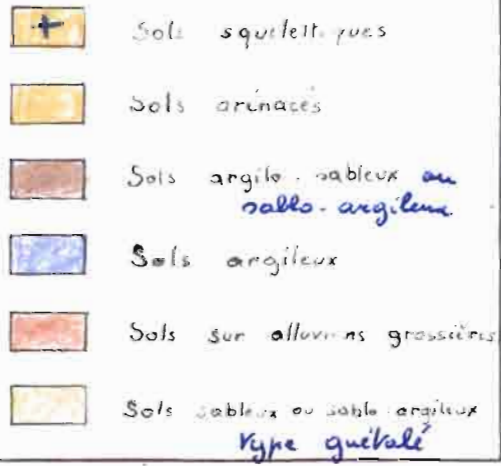 Sols squelettiques
Sols arénacés
Sols argilo-sableux ou
sablo-argileux
Sols argileux
Sols sur alluvions grossières
Sols sableux ou sablo argileux
Type guétalé